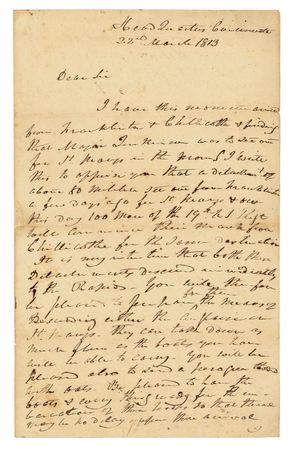 Head Quarters Cincinnati
22nd March 1813
Dear Sir
I have this moment arrived
from Franklinton & Chillicothe & finding
that Major Jenkinson was to set out
for St Marys in the morng I write
this to apprise you that a detachmt of
about 60 militia set out from Franklinton
a few days ago for St Marys &
this day 100 more of the 19th U.S. Regt
will commence their march from
Chillicothe for the same destination
It is my intention that both these
Detachments descend immediately
to the Rapids. You will therefore
be pleased to prepare the means of
Descending either the Au Glaize or
St Marys. they can take down as
much flour as the boats you have
will be able to carry. You will be
pleased also to send a
with boats. Be pleased to have the
boats & every thing ready for the em-
barcation of these troops so that there
may be no delay upon their arrival